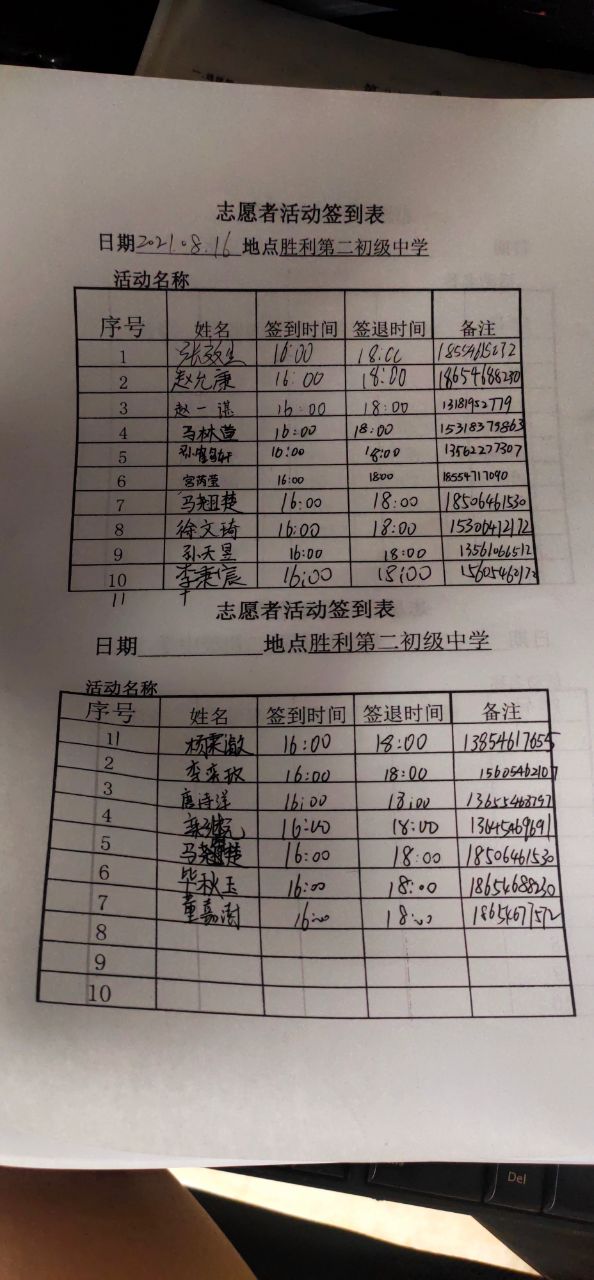 志愿者活动签到表
日期2021.08.16 地点胜利第二初级中学
活动名称
序号 姓名 签到时间 签退时间 备注
1 16:00 18:00
2 赵允康 16:00 18:00 18654688230
3 赵一谋 16:00 18:00 13181952779
4 马林萱 16:00 18:00 15318379863
5 16:00 18:00 13562277307
6 宫芮莹 16:00 1800 18554717090
7 马翘楚 16:00 18:00 18506461530
8 徐文琦 16:00 18:00 15306412172
9 孙天昱 16:00 18:00 13561066512
10 李秉宸 16:00 18:00 15605462172
11
志愿者活动签到表
日期 地点胜利第二初级中学
活动名称
序号 姓名 签到时间 签退时间 备注
11 16:00 18:00 13854617655
2 16:00 18:00 15605462107
3 唐诗洋 16:00 18:00
4 16:00 18:00 13645469691
5 马翘楚 16:00 18:00 18506461530
6 毕秋玉 16:00 18:00 18654688230
7 董嘉澍 16:00 18:00 18654677572
8
9
10
Del